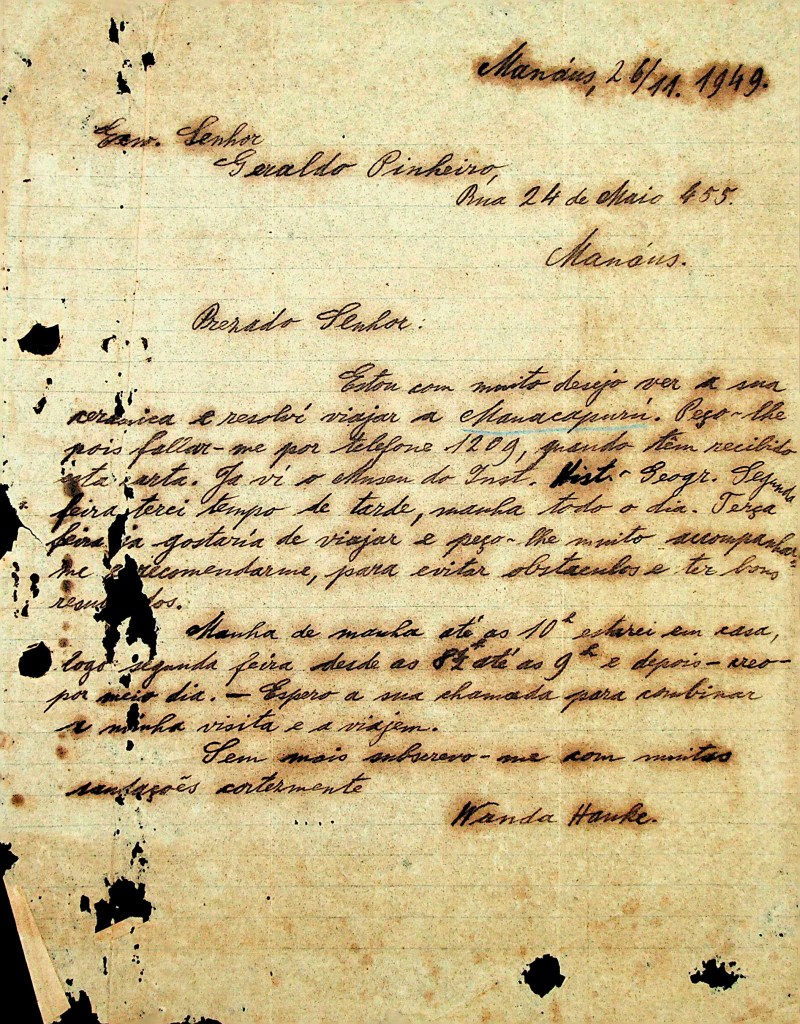 Manáus, 26/11. 1949.
Exm. Senhor
Geraldo Pinheiro,
Rua 24 de Maio 455.
Manáus.
Prezado Senhor:
Estou com muito desejo ver a sua
ceramica e resolví viajar a Manacapurú. Peço-lhe
pois fallar-me por telefone 1209, quando têm recibido
esta carta. Ja ví o Museu do Inst. Hist.- Geogr. Segunda
feira terei tempo de tarde, manha todo o dia. Terça
feira ja gostaria de viajar e peço-lhe muito accompanhar-
me e recomendarme, para evitar obstaculos e ter bons
Manha de manha até as 10h estarei em casa,
logo segunda feira desde as 8½h até as 9h e depois - creo -
por meio dia. - Espero a sua chamada para combinar
a minha visita e a viajem.
Sem mais subscrevo-me com muitas
saudações cortezmente
Wanda Hanke.